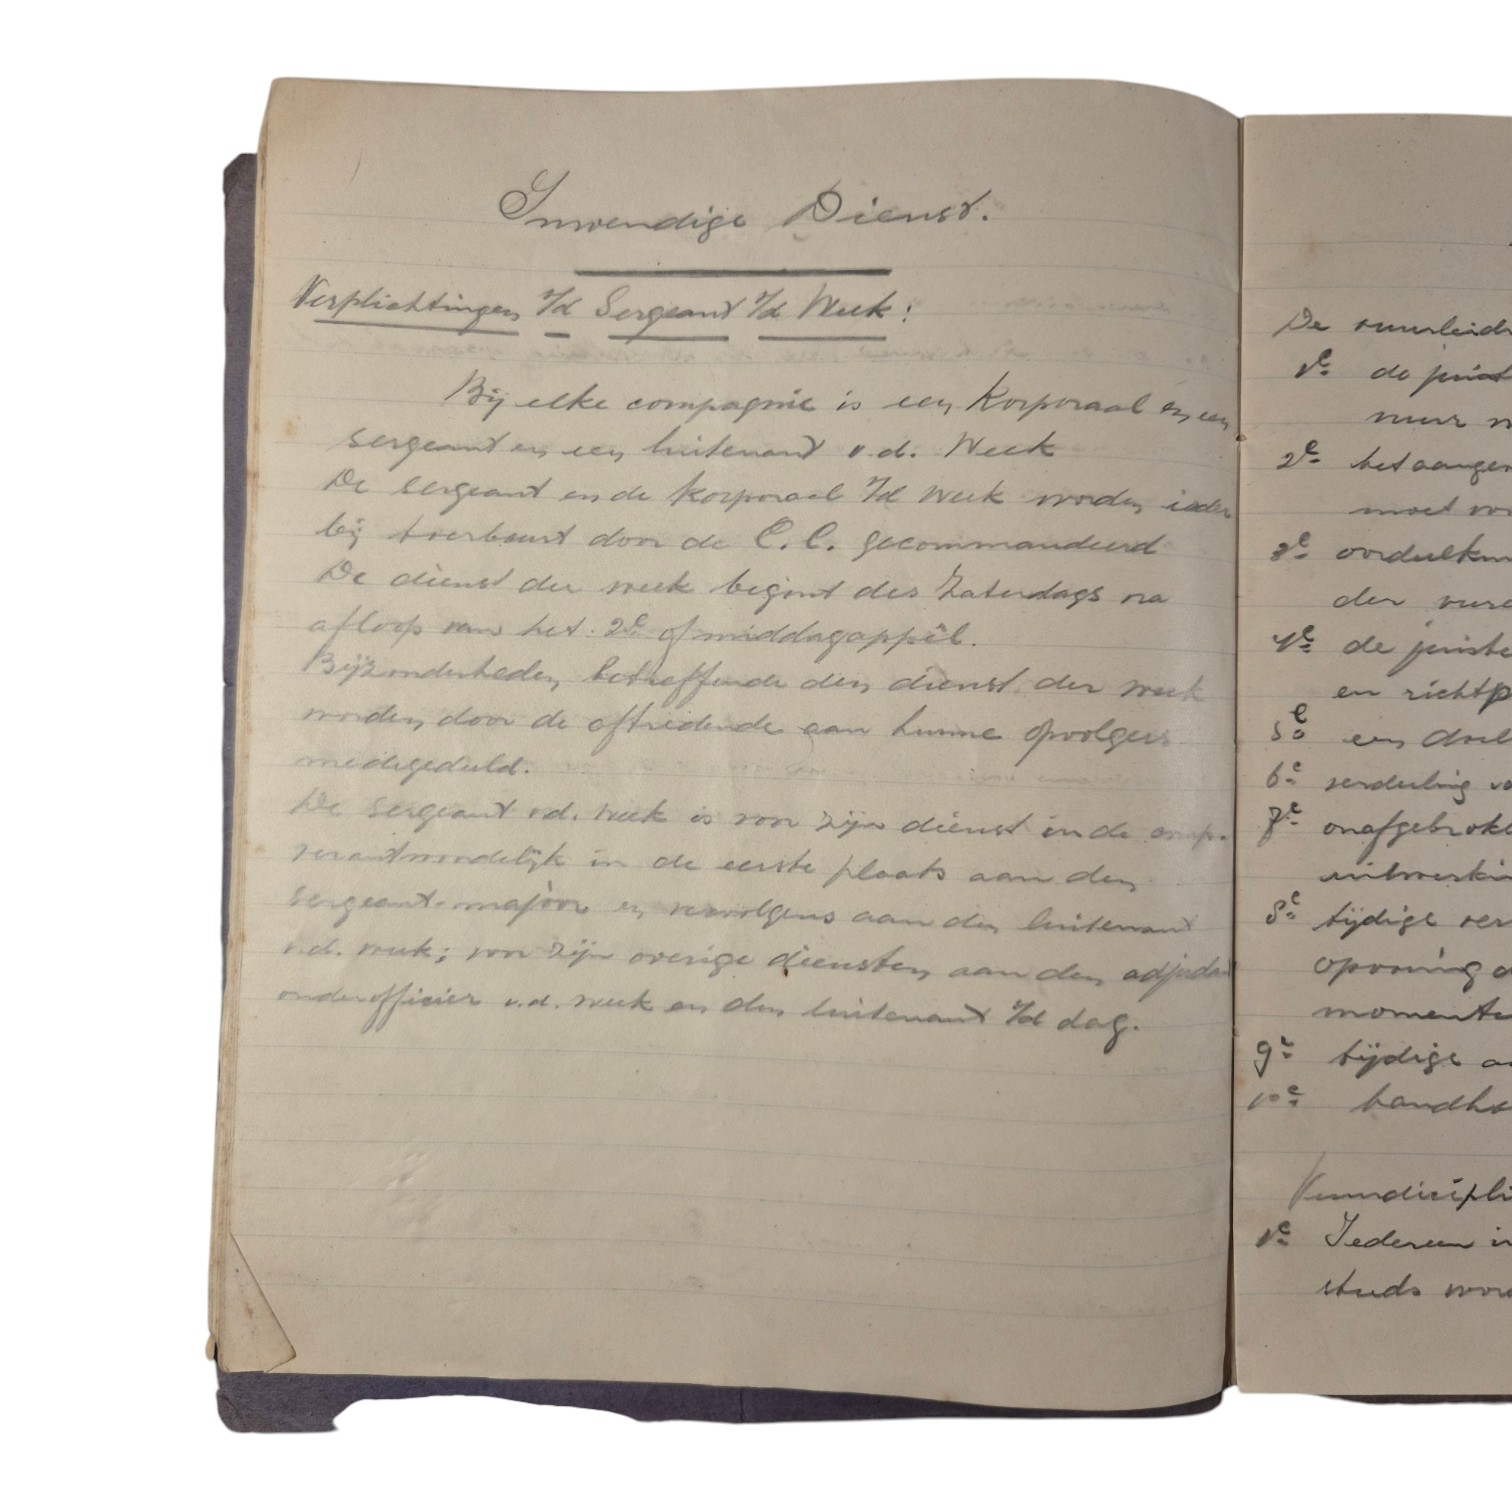 Inwendige Dienst.
Verplichtingen v/d Sergeant v/d Week:
Bij elke compagnie is een Korporaal en een
sergeant en een luitenant v.d. Week
De sergeant en de korporaal v/d week worden ieder
bij toerbeurt door de C.C. gecommandeerd
De dienst der week begint des Zaterdags na
afloop van het 2e of middagappèl.
Bijzonderheden betreffende den dienst der week
worden door de aftredende aan hunne opvolgers
medegedeeld.
De sergeant v.d. week is voor zijn dienst in de comp.
verantwoordelijk in de eerste plaats aan den
sergeant-majoor en vervolgens aan den luitenant
v.d. week; voor zijn overige diensten aan den adjudant
onderofficier v.d. week en den luitenant v/d dag.
De vuurleid
1e de juist
meer
2e het aangen
moet voor
3e oordeelkun
der vure
4e de juiste
en richtp
5e een doel
6e verdeeling va
7e onafgebroke
uitwerkin
8e tijdige ver
opvoering
momente
9e tijdige
10e handha
Vuurdiscipli
1e Iedereen in
steeds word